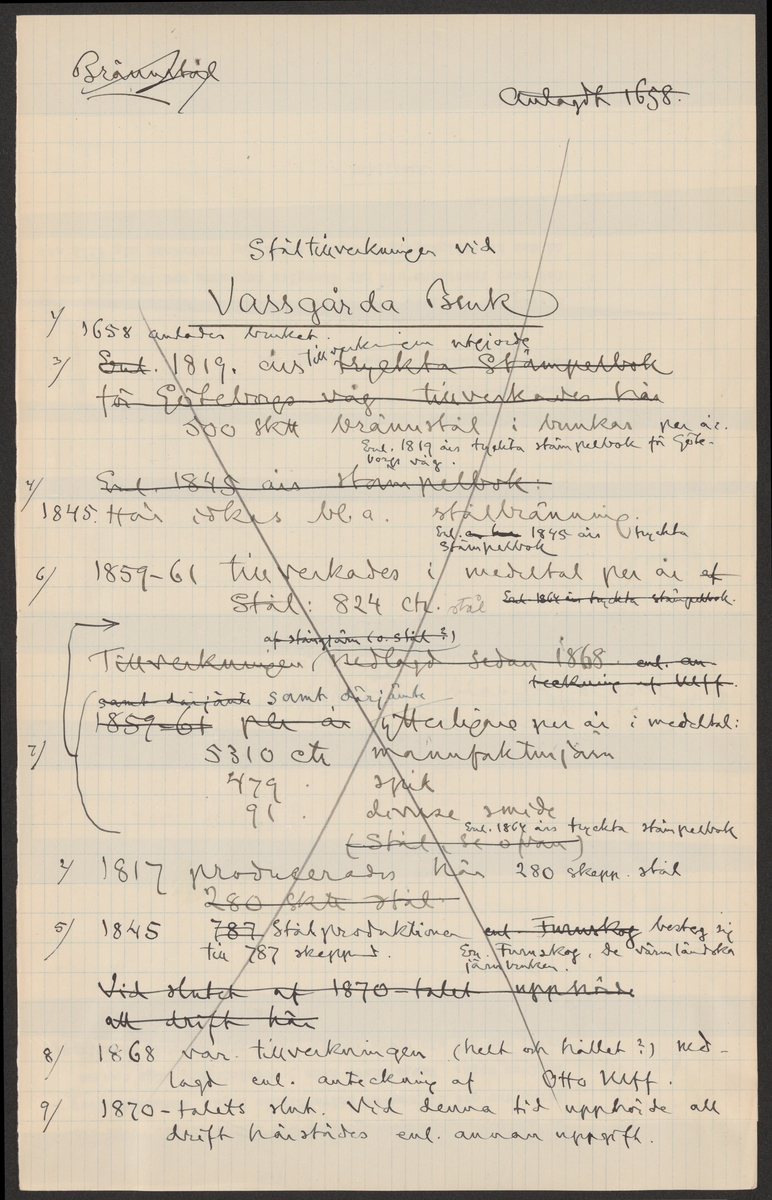 Brännstål
Anlagdt 1658.
Ståltillverkningen vid
Vassgårda Bruk
1/ 1658 anlades bruket.
tillverkningen utgjorde
3/ Enl. 1819. års tryckta Stämpelbok
för Göteborgs våg tillverkades här
500 sk℔ brännstål i bunkar per år.
Enl. 1819 års tryckta stämpelbok för Göte-
borgs våg.
4/ Enl. 1845 års stämpelbok:
1845. Här idkas bl.a. stålbränning.
Enl. 1845 års tryckta
stämpelbok
6/ 1859-61 tillverkades i medeltal per år af
Stål: 824 ctr. stål Enl 1864 års tryckta stämpelbok.
af stångjärn (o. stål?)
Tillverkningen nedlagd sedan 1868 enl. an-
teckning af Ulff.
samt därjämte samt därjämte
1859-61 per år ytterligare per år i medeltal:
7/ 5310 ctr manufakturjärn
479 . spik
91 . diverse smide
Enl. 1864 års tryckta stämpelbok
(Stål, se ofvan)
2/ 1817 producerades här 280 skepp. stål
280 sk℔ stål.
5/ 1845 787 Stålproduktionen enl. Furuskog besteg sig
till 787 skeppd. Enl. Furuskog, De värmländska
järnbruken.
Vid slutet af 1870-talet upphörde
all drift här
8/ 1868 var tillverkningen (helt och hållet?) ned-
lagd enl. anteckning af Otto Ulff.
9/ 1870-talets slut. Vid denna tid upphörde all
drift härstädes enl. annan uppgift.